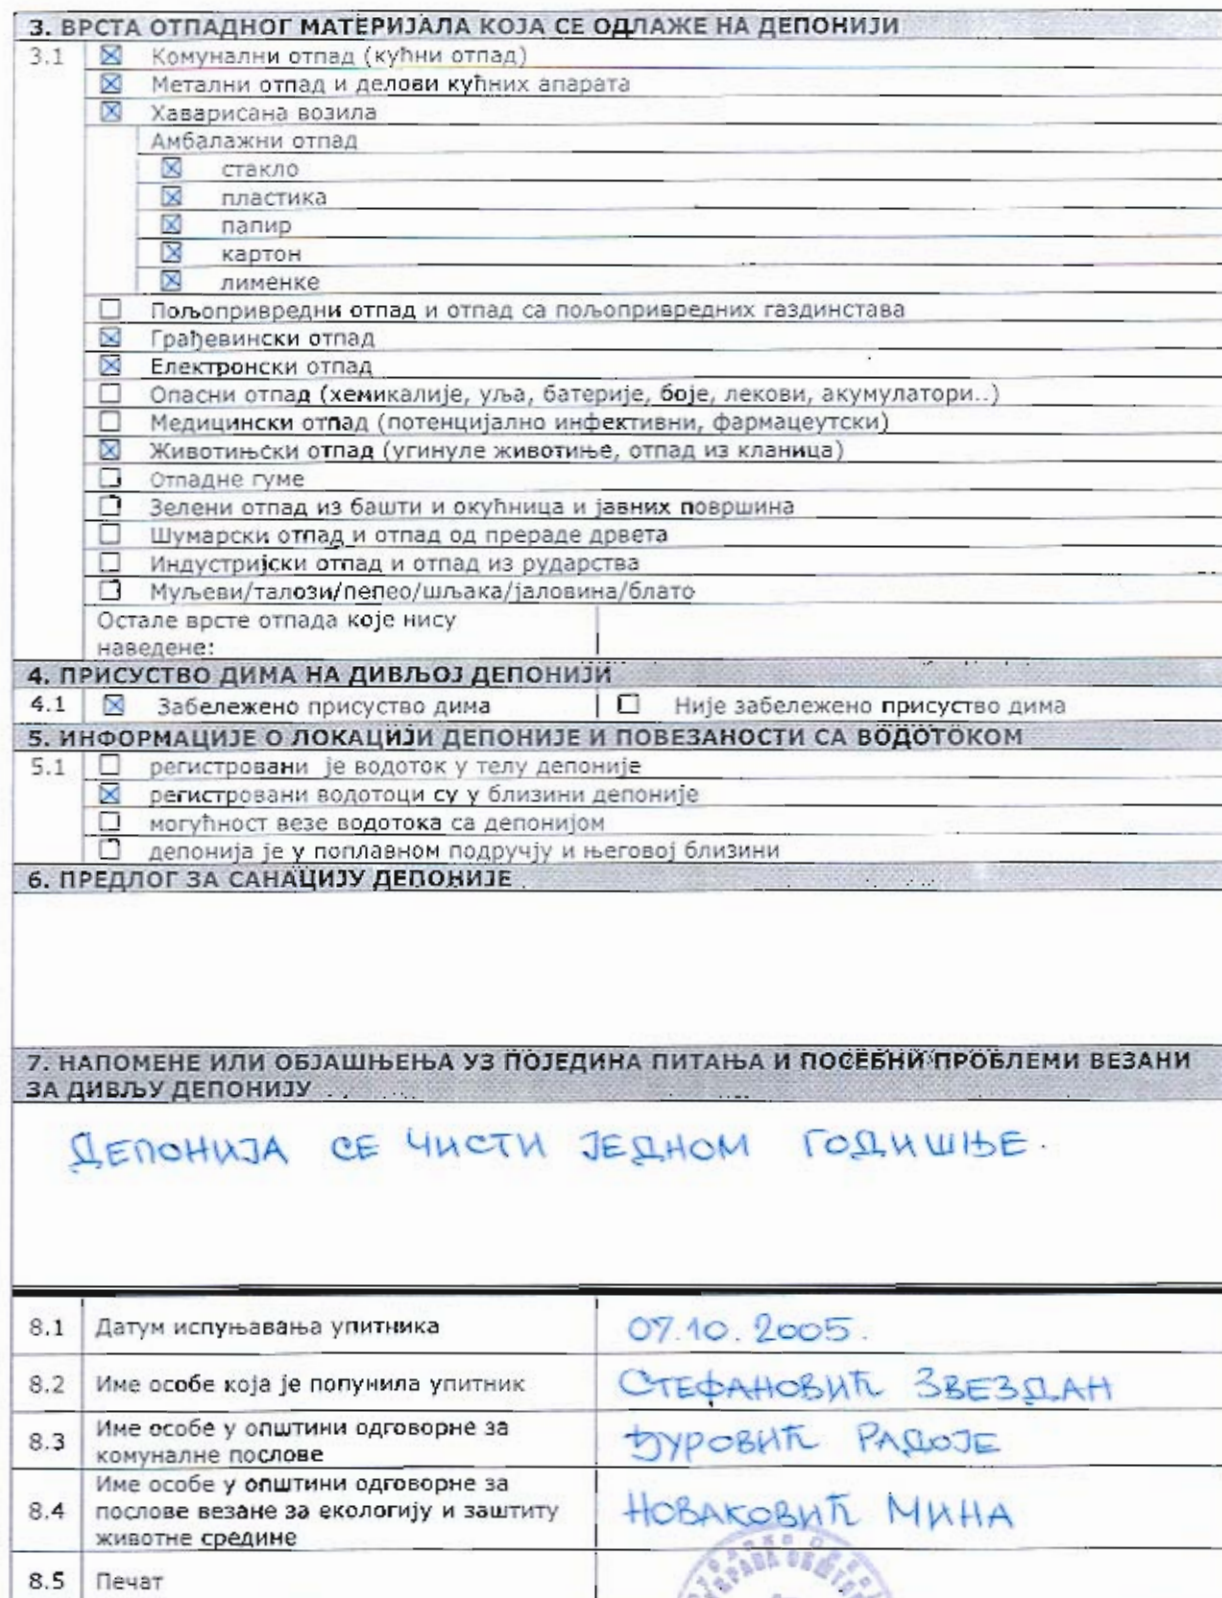 3. ВРСТА ОТПАДНОГ МАТЕРИЈАЛА КОЈА СЕ ОДЛАЖЕ НА ДЕПОНИЈИ
3.1 ☒ Комунални отпад (кућни отпад)
☒ Метални отпад и делови кућних апарата
☒ Хаварисана возила
Амбалажни отпад
☒ стакло
☒ пластика
☒ папир
☒ картон
☒ лименке
☐ Пољопривредни отпад и отпад са пољопривредних газдинстава
☒ Грађевински отпад
☒ Електронски отпад
☐ Опасни отпад (хемикалије, уља, батерије, боје, лекови, акумулатори..)
☐ Медицински отпад (потенцијално инфективни, фармацеутски)
☒ Животињски отпад (угинуле животиње, отпад из кланица)
☐ Отпадне гуме
☐ Зелени отпад из башти и окућница и јавних површина
☐ Шумарски отпад и отпад од прераде дрвета
☐ Индустријски отпад и отпад из рударства
☐ Муљеви/талози/пепео/шљака/јаловина/блато
Остале врсте отпада које нису
наведене:
4. ПРИСУСТВО ДИМА НА ДИВЉОЈ ДЕПОНИЈИ
4.1 ☒ Забележено присуство дима ☐ Није забележено присуство дима
5. ИНФОРМАЦИЈЕ О ЛОКАЦИЈИ ДЕПОНИЈЕ И ПОВЕЗАНОСТИ СА ВОДОТОКОМ
5.1 ☐ регистровани је водоток у телу депоније
☒ регистровани водотоци су у близини депоније
☐ могућност везе водотока са депонијом
☐ депонија је у поплавном подручју и његовој близини
6. ПРЕДЛОГ ЗА САНАЦИЈУ ДЕПОНИЈЕ
7. НАПОМЕНЕ ИЛИ ОБЈАШЊЕЊА УЗ ПОЈЕДИНА ПИТАЊА И ПОСЕБНИ ПРОБЛЕМИ ВЕЗАНИ
ЗА ДИВЉУ ДЕПОНИЈУ
ДЕПОНИЈА СЕ ЧИСТИ ЈЕДНОМ ГОДИШЊЕ.
8.1 Датум испуњавања упитника 07.10.2005.
8.2 Име особе која је попунила упитник СТЕФАНОВИЋ ЗВЕЗДАН
8.3 Име особе у општини одговорне за
комуналне послове ЂУРОВИЋ РАДОЈЕ
8.4 Име особе у општини одговорне за
послове везане за екологију и заштиту
животне средине НОВАКОВИЋ МИНА
8.5 Печат